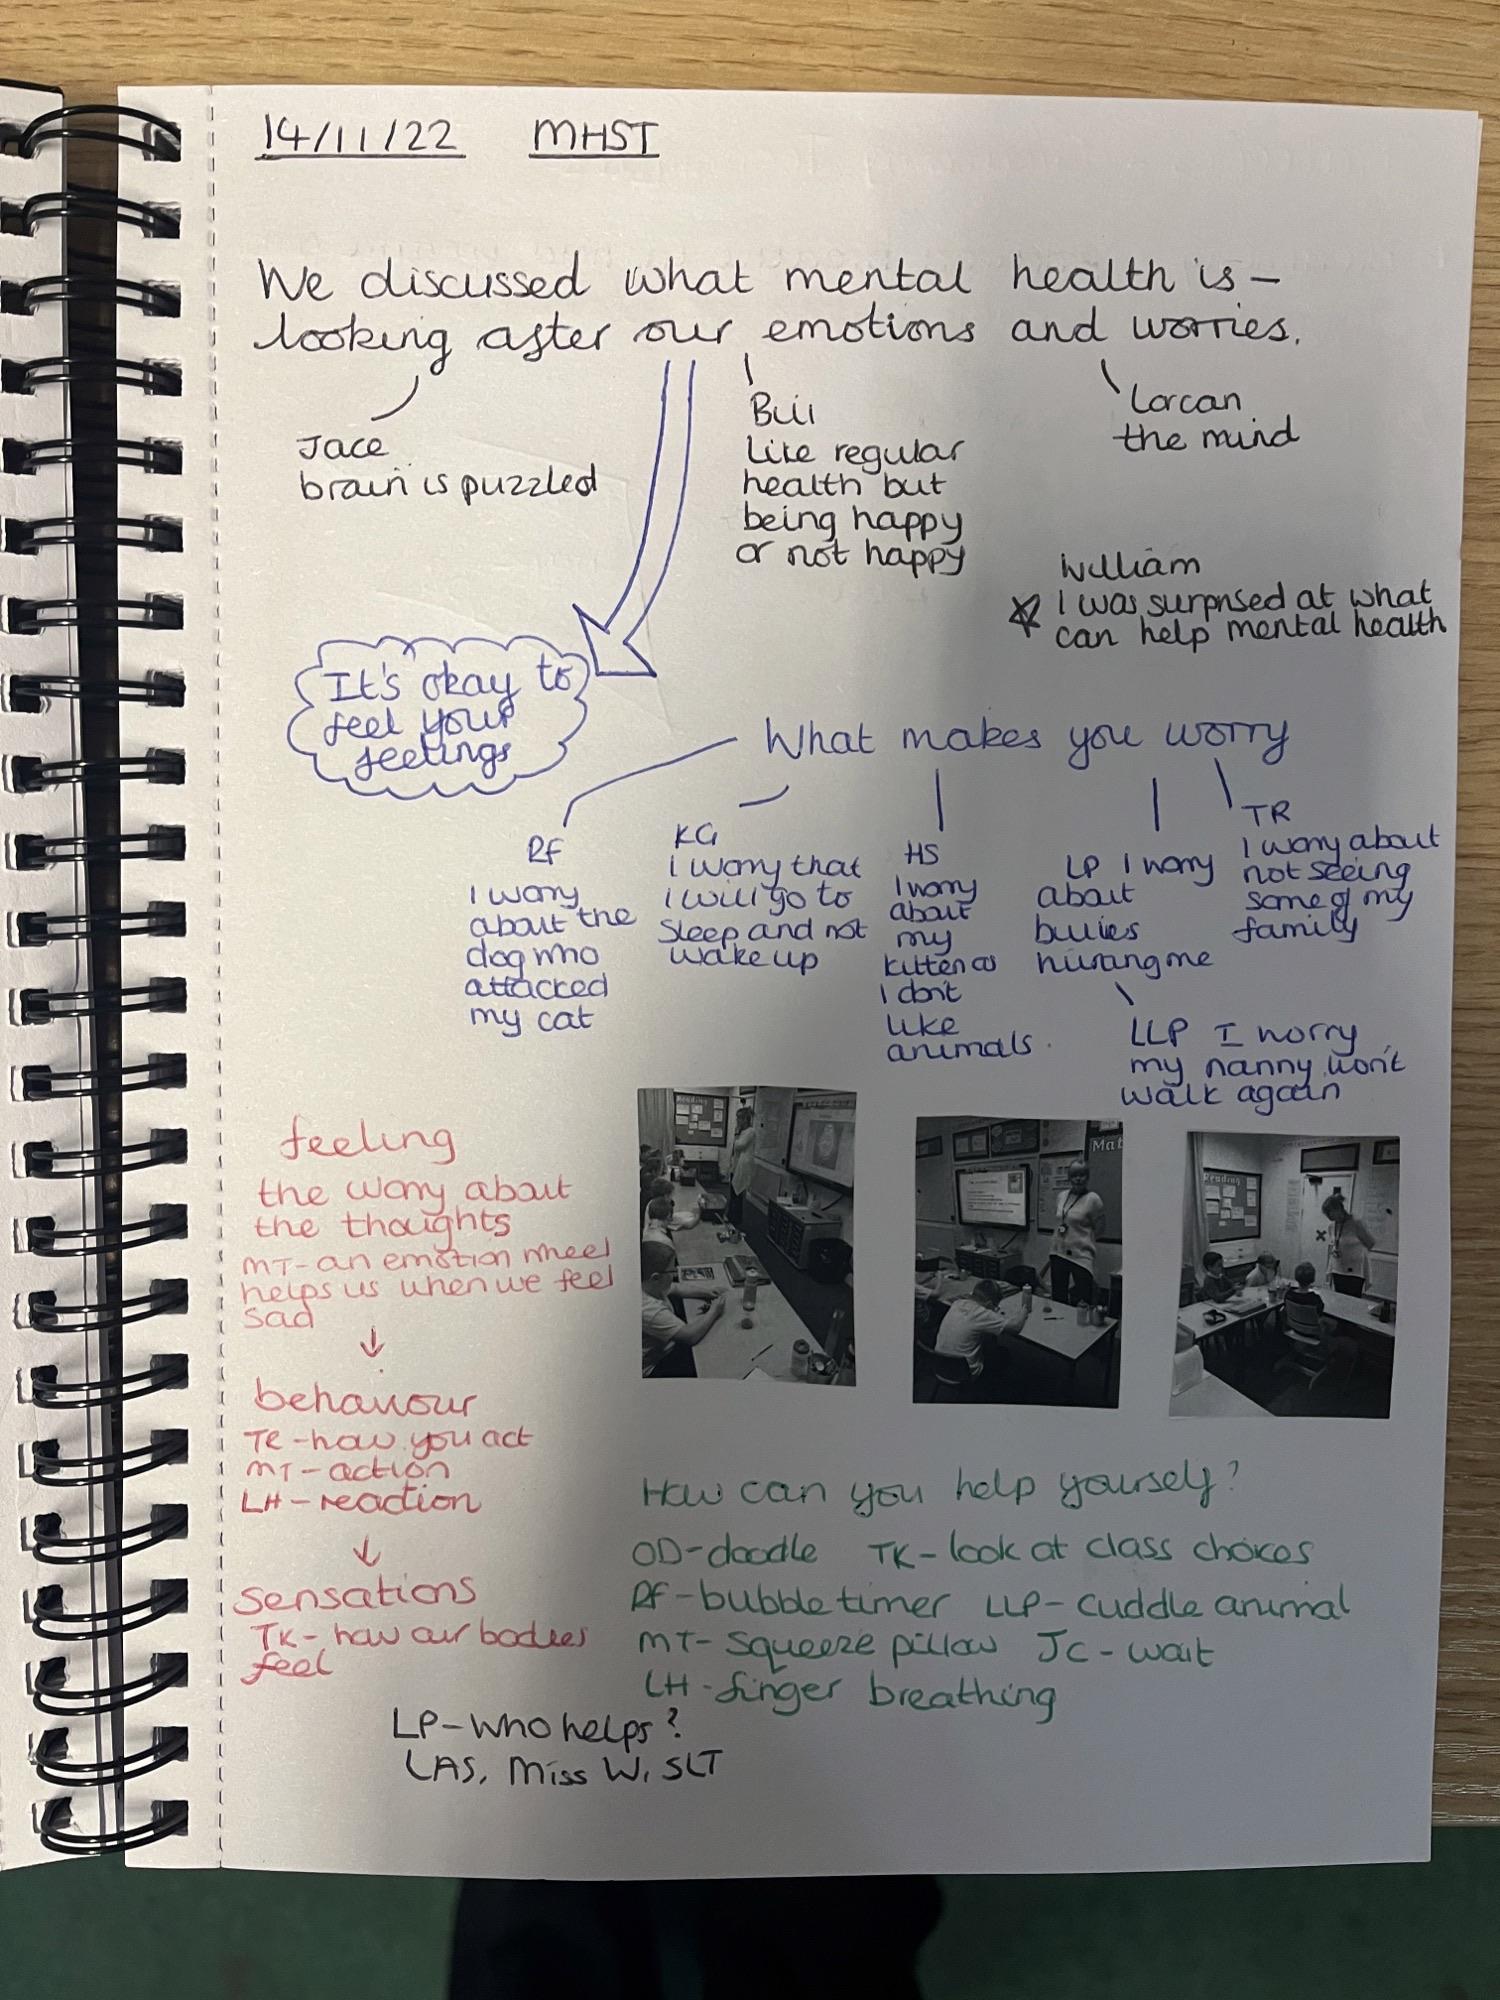 14/11/22 MHST
We discussed what mental health is -
looking after our emotions and worries.
Jace
brain is puzzled
Bill
Like regular
health but
being happy
or not happy
Lorcan
the mind
William
I was surprised at what
can help mental health
It's okay to
feel your
feelings
What makes you worry
RF
I worry
about the
dog who
attacked
my cat
KG
I worry that
I will go to
sleep and not
wake up
HS
I worry
about
my
kitten as
I don't
like
animals.
LP I worry
about
bullies
hurting me
TR
I worry about
not seeing
some of my
family
LLP I worry
my nanny won't
walk again
Reading
Mat
Reading
feeling
the worry about
the thoughts
MT - an emotion wheel
helps us when we feel
sad
behaviour
TR - how you act
MT - action
LH - reaction
sensations
TK - how our bodies
feel
How can you help yourself?
OD - doodle TK - look at class choices
RF - bubble timer LLP - cuddle animal
MT - squeeze pillow JC - wait
LH - finger breathing
LP - who helps?
LAS, Miss W, SLT